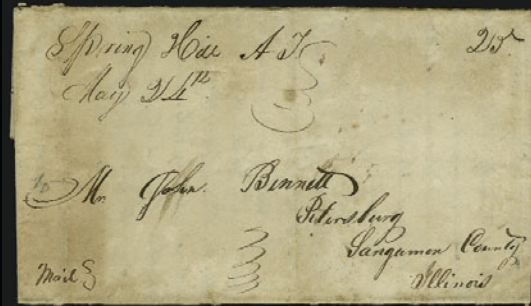 Spring Hill A T 25
May 24th
To Mr John Bennett
Petersburg
Sangamon County
Illinois
Mail